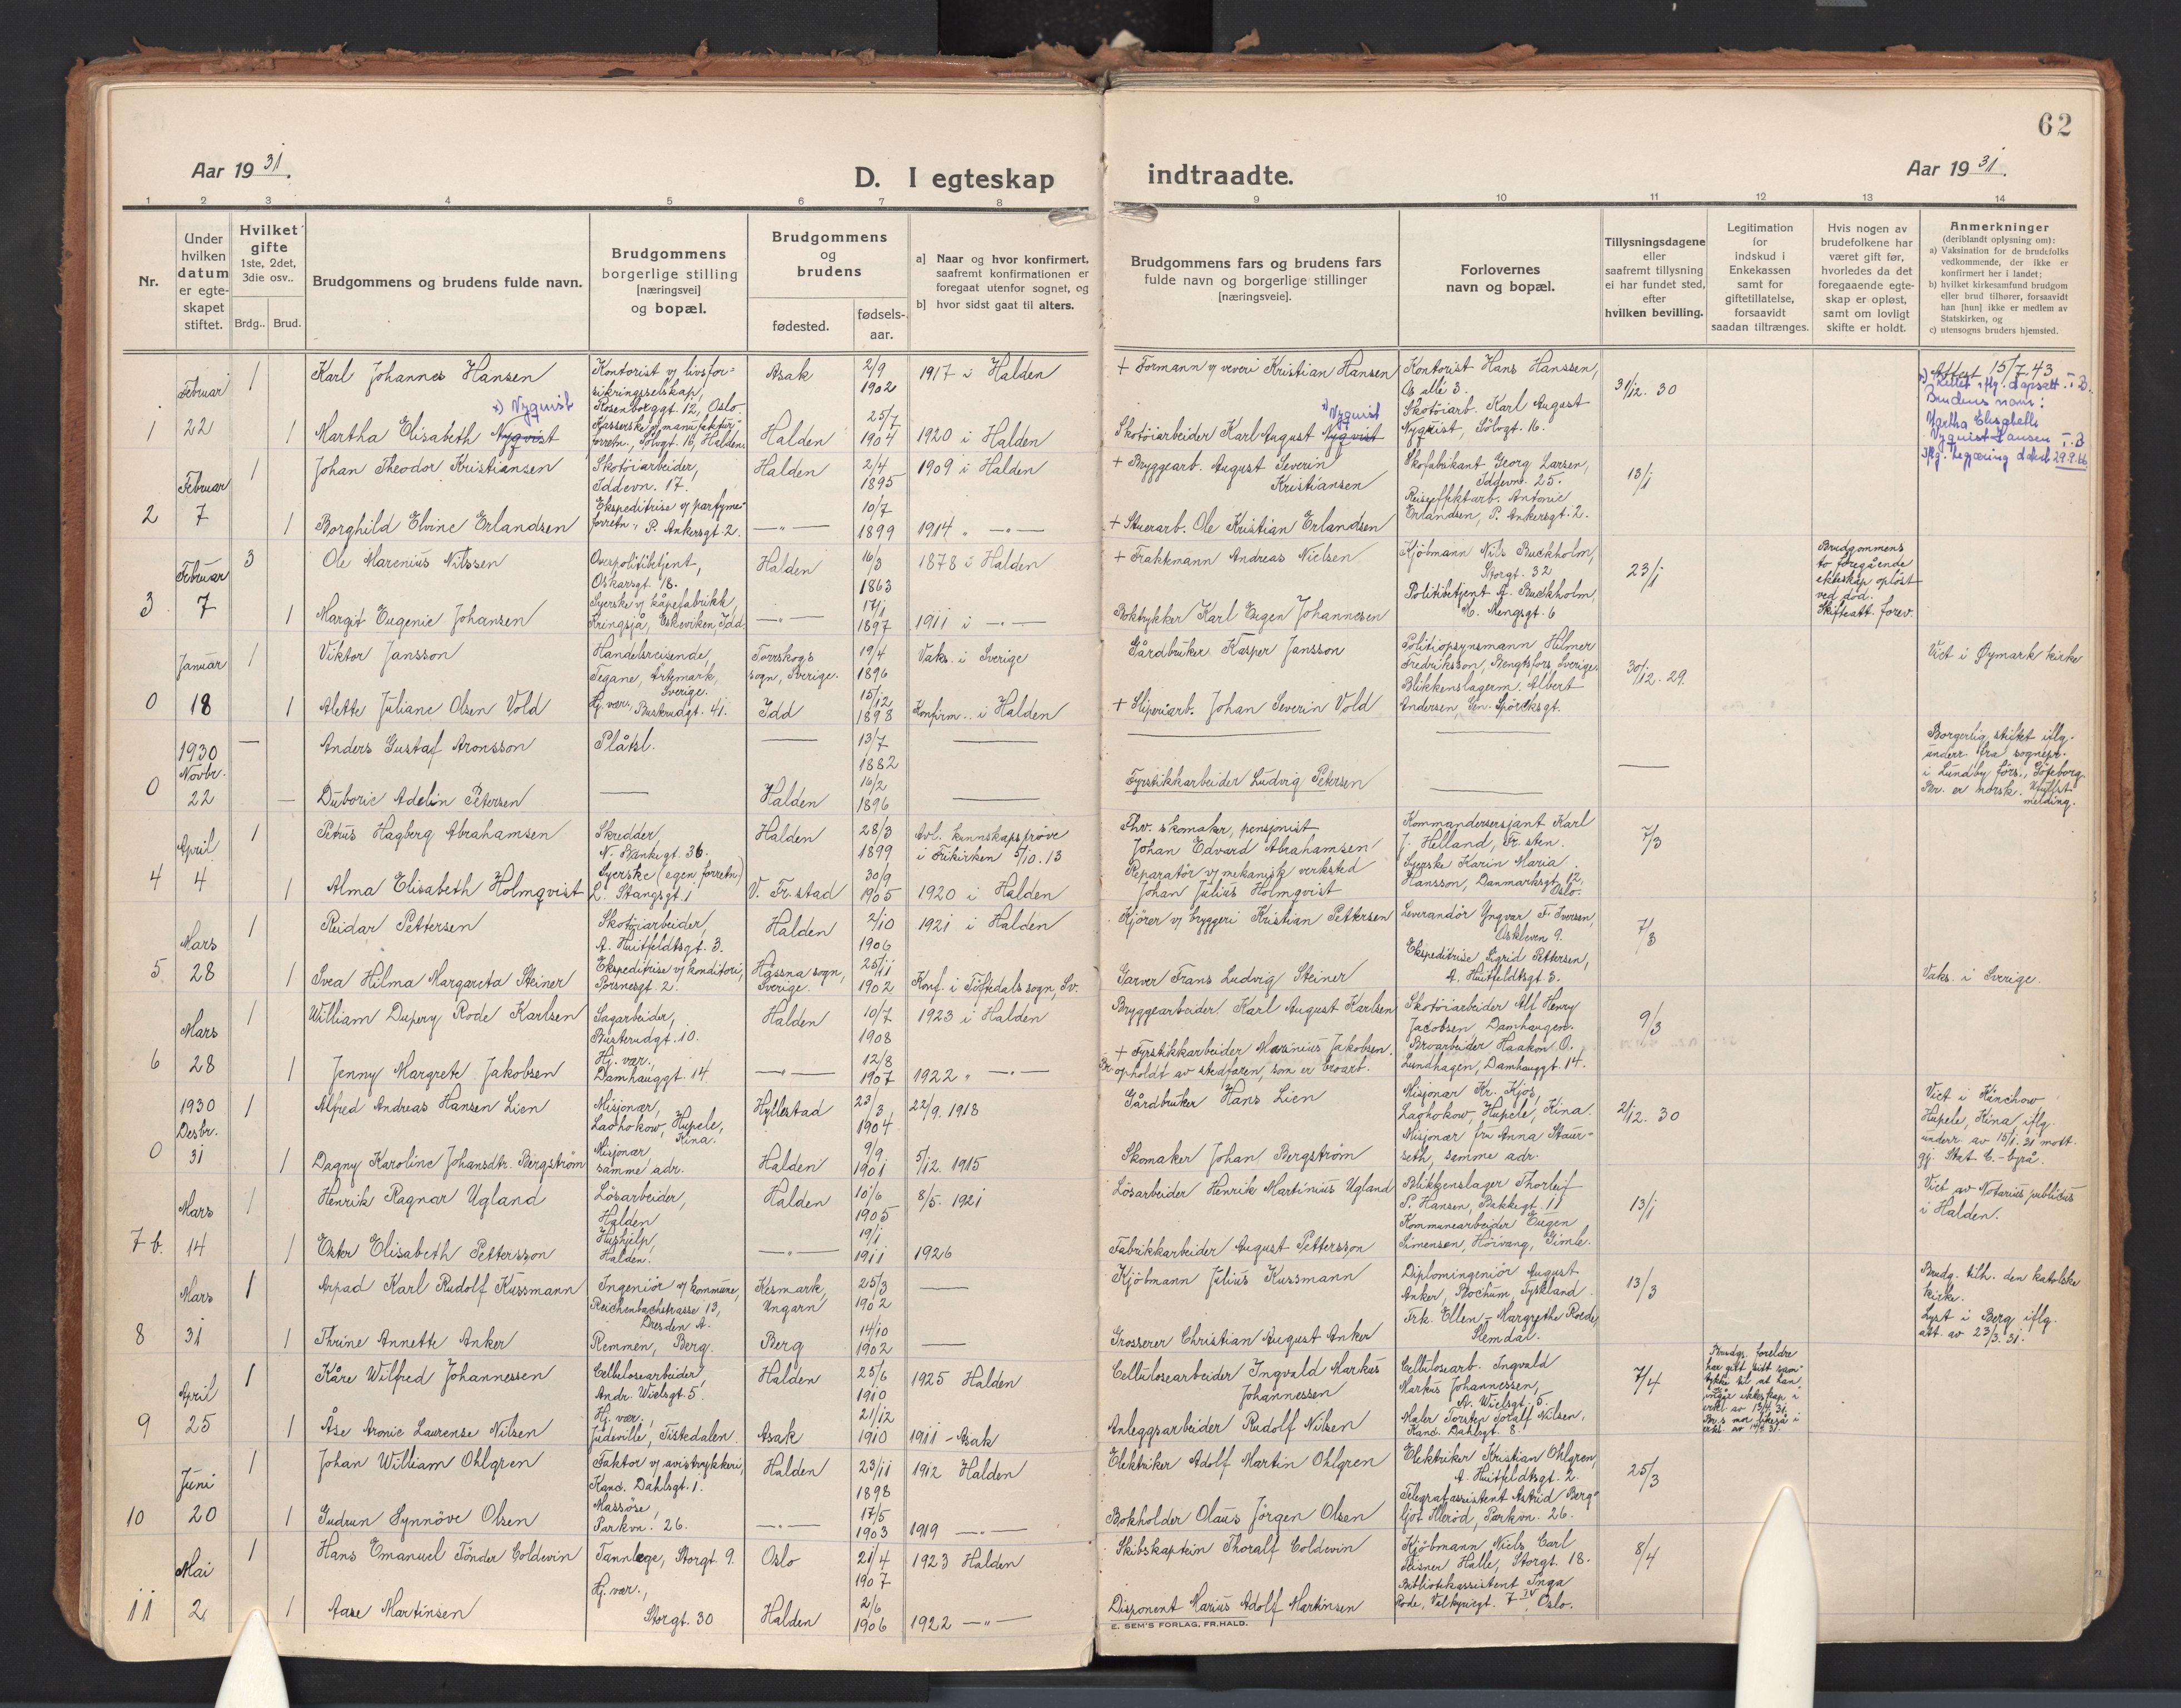 62
Aar 19 31.
D. I egteskap indtraadte.
Aar 19 31.
1 2 3 4 5 6 7 8 9 10 11 12 13 14
Nr.
Under hvilken datum er egteskapet stiftet.
Hvilket gifte 1ste, 2det, 3die osv..
Brdg.. Brud.
Brudgommens og brudens fulde navn.
Brudgommens borgerlige stilling [næringsvei] og bopæl.
Brudgommens og brudens
fødested.
fødselsaar.
a] Naar og hvor konfirmert, saafremt konfirmationen er foregaat utenfor sognet, og
b] hvor sidst gaat til alters.
Brudgommens fars og brudens fars fulde navn og borgerlige stillinger [næringsveie].
Forlovernes navn og bopæl.
Tillysningsdagene eller saafremt tillysning ei har fundet sted, efter hvilken bevilling.
Legitimation for indskud i Enkekassen samt for giftetillatelse, forsaavidt saadan tiltrænges.
Hvis nogen av brudefolkene har været gift før, hvorledes da det foregaaende egteskap er opløst, samt om lovligt skifte er holdt.
Anmerkninger (deriblandt oplysning om):
a) Vaksination for de brudefolks vedkommende, der ikke er konfirmert her i landet;
b) hvilket kirkesamfund brudgom eller brud tilhører, forsaavidt han [hun] ikke er medlem av Statskirken, og
c) utensogns bruders hjemsted.
1 Februar 22
1 Karl Johannes Hansen Kontorist v/ livsforsikringsselskap, Rosenborggt. 12, Oslo. Asak 2/9 1902 1917 i Halden + Formann v/ veveri Kristian Hansen Kontorist Hans Hanssen, Os allé 3. 31/12. 30
x) Nyquist
1 Martha Elisabeth Nyqvist Kasserske v/ manufakturforretn., Sölvgt. 16, Halden Halden 25/7 1904 1920 i Halden Skotöiarbeider Karl August Nyqvist x) Nyquist Skotöiarb. Karl August Nyquist, Sölvgt. 16.
Attest 15/7. 43
Brudens navn:
Martha Elisabeth
Nyquist Hansen
2 Februar 7
1 Johan Theodor Kristiansen Skotöiarbeider, Iddevn. 17. Halden 2/4 1895 1909 i Halden + Bryggearb. August Severin Kristiansen Skofabrikant Georg Larsen, Iddevn. 25. 13/1
1 Borghild Elvine Erlandsen Ekspeditrise v/ parfymeforretn., P. Ankersgt. 2. —"— 10/7 1899 1914 " —"— + Stuerarb. Ole Kristian Erlandsen Reiseeffektarb. Antonie Erlandsen, P. Ankersgt. 2.
3 Februar 7
3 Ole Marenius Nilssen Overpolitibetjent, Oskarsgt. 18. Halden 16/3 1863 1878 i Halden + Fraktemann Andreas Nielsen Kjöbmann Nils Buckholm, Storgt. 32 23/1 Brudgommens to foregående ekteskap oplöst ved död. Skifteatt. forev.
1 Margit Eugenie Johansen Syerske v/ kåpefabrikk, Kringsjå, Eskeviken, Idd. —"— 17/1 1897 1911 i —"— Boktrykker Karl Eugen Johannesen Politibetjent A. Buckholm, M. Mengsgt. 6
0 Januar 18
1 Viktor Jansson Handelsreisende, Tegane, Ärtemark, Sverige. Torrskogs sogn, Sverige. 19/4 1896 Vaks. i Sverige Gårdbruker Kasper Jansson Politiopsynsmann Hilmer Fredriksson, Bengtsfors, Sverige. 30/12. 29. Viet i Øymark kirke
1 Alette Juliane Olsen Vold Hj. vær., Buskrudgt. 41. Idd 15/12 1898 Konfirm. i Halden + Sliperiarb. Johan Severin Vold Blikkenslagerm. Albert Andersen, Gen. Spörcksgt.
0 1930 Novbr. 22
— Anders Gustaf Aronsson Plåtsl. — 13/7 1882 — — —
— Duborie Adelin Petersen — Halden 16/2 1896 — Fyrstikkarbeider Ludvig Petersen — —
Borgerlig stiftet iflg. underr. fra sognepr. i Lundby förs., Göteborg. Br. er norsk.
4 April 4
1 Petrus Hagberg Abrahamsen Skredder, N. Bankegt. 36. Halden 28/3 1899 Avl. kunnskapspröve i Frikirken 5/10. 13 Fhv. skomaker, pensjonist Johan Edvard Abrahamsen Kommandersersjant Karl J. Helland, Fr. sten. 7/3
1 Alma Elisabeth Holmqvist Syerske (egen forretn.) L. Stangsgt. 1 V. Fr.stad 30/9 1905 1920 i Halden Reparatör v/ mekanisk verksted Johan Julius Holmqvist Syerske Karin Maria Hansson, Danmarksgt. 12, Oslo.
5 Mars 28
1 Reidar Pettersen Skotöiarbeider, A. Huitfeldtsgt. 3. Halden 2/10 1906 1921 i Halden Kjörer v/ bryggeri Kristian Pettersen Leverandör Yngvar F. Iversen, Oskleven 9. 7/3
1 Svea Hilma Margareta Steiner Ekspeditrise v/ konditori, Porsnesgt. 2. Håssna sogn, Sverige. 25/11 1902 Konf. i Töftedals sogn, Sv. Garver Frans Ludvig Steiner Ekspeditrise Sigrid Pettersen, A. Huitfeldtsgt. 3. Vaks. i Sverige.
6 Mars 28
1 William Dupery Rode Karlsen Sagarbeider, Busterudgt. 10. Halden 10/7 1908 1923 i Halden Bryggearbeider Karl August Karlsen Skotöiarbeider Alf Henry Jacobsen, Damhaugen. 9/3
1 Jenny Margrete Jakobsen Hj. vær., Damhauggt. 14 —"— 12/8 1907 1922 " —"— + Fyrstikkarbeider Marinius Jakobsen. Br. opholdt av stedfaren, som er broarb. Broarbeider Haakon O. Lundhagen, Damhauggt. 14.
0 1930 Desbr. 31
1 Alfred Andreas Hansen Lien Misjonær, Laohokow, Hupele, Kina. Hyllestad 23/3 1904 22/9. 1918 Gårdbruker Hans Lien Misjonær Kr. Kjös, Laohokow, Hupele, Kina. 2/12. 30 Viet i Kinchow Hupele, Kina iflg. underr. av 15/1. 31 mott. gj. Stat. C.-byrå.
1 Dagny Karoline Johansdtr. Bergström Misjonær, samme adr. Halden 9/9 1901 5/12. 1915 Skomaker Johan Bergström Misjonær fru Anna Staurseth, samme adr.
7 b. Mars 14
1 Henrik Ragnar Ugland Lösarbeider, Halden Halden 10/6 1905 8/5. 1921 Lösarbeider Henrik Martinius Ugland Blikkenslager Thorleif P. Hansen, Bakkegt. 11 13/1 Viet av Notarius publicus i Halden.
1 Ester Elisabeth Pettersson Hushjelp, Halden. —"— 19/1 1911 1926 Fabrikkarbeider August Pettersson Kommunearbeider Eugen Simensen, Höivang, Gimle.
8 Mars 31
1 Arpad Karl Rudolf Kussmann Ingeniör v/ kommune, Reichenbachstrasse 13, Dresden A. Kesmark, Ungarn 25/3 1902 — Kjöbmann Julius Kussmann Diplomingeniör August Anker, Bochum, Tyskland. 13/3 Brudg. tilh. den katolske kirke.
1 Thrine Annette Anker Remmen, Berg. Berg 14/10 1902 — Grosserer Christian August Anker Frk. Ellen-Margrethe Roede, Slemdal. Lyst i Berg iflg. att. av 23/3. 31.
9 April 25
1 Kåre Wilfred Johannessen Cellulosearbeider, Andr. Wielsgt. 5. Halden 25/6 1910 1925 Halden Cellulosearbeider Ingvald Markus Johannessen Cellulosearb. Ingvald Markus Johannessen, A. Wielsgt. 5. 7/4 Brudgs. foreldre har gitt sitt samtykke til at han inngår ekteskap i erkl. av 13/4 31.
1 Åse Aronie Laurense Nilsen Hj. vær., Judeville, Tistedalen. Asak 21/12 1910 1911 – Asak Anleggsarbeider Rudolf Nilsen Maler Torstein Toralf Nilsen, Kand. Dahlsgt. 8.
10 Juni 20
1 Johan William Ohlgren Faktor v/ avistrykkeri, Kand. Dahlsgt. 1. Halden 23/11 1898 1912 Halden Elektriker Adolf Martin Ohlgren Elektriker Kristian Ohlgren, A. Huitfeldtsgt. 2. 25/3
1 Gudrun Synnöve Olsen Massöse, Parkvn. 26. —"— 17/5 1903 1919 —"— Bokholder Olaus Jörgen Olsen Telegrafassistent Astrid Bergljot Meröd, Parkvn. 26.
11 Mai 2
1 Hans Emanuel Tönder Coldevin Tannlæge, Storgt. 9. Oslo 21/4 1907 1923 Halden Skibskaptein Thoralf Coldevin Kjöbmann Niels Carl Heisner Halle, Storgt. 18. 8/4
1 Aase Martinsen Hj. vær., Storgt. 30 Halden 2/6 1906 1922 —"— Disponent Marius Adolf Martinsen Bibliotekassistent Inga Rode, Valkyriegt. 7 IV Oslo.
E. SEM'S FORLAG, FR.HALD.